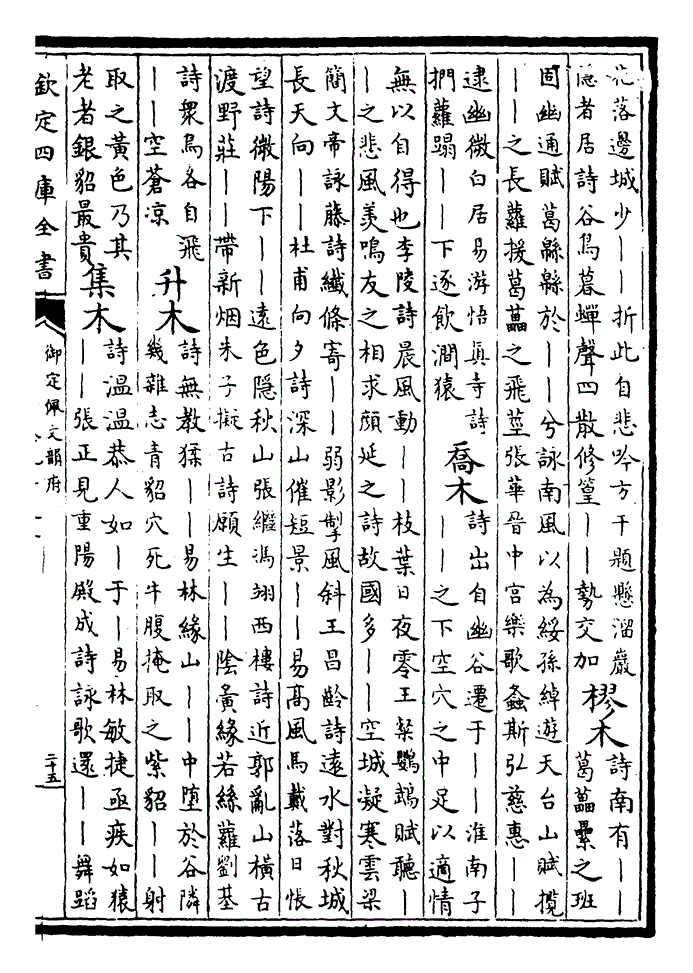 花落邊城少丨丨折此自悲吟方干題懸溜巖
隠者居詩谷鳥暮蟬聲四散修篁丨丨勢交加
樛木
詩南有丨丨
葛藟纍之班
固幽通賦葛緜緜於丨丨兮詠南風以為綏孫綽遊天台山賦攬
丨丨之長蘿援葛藟之飛莖張華晉中宫樂歌螽斯弘慈惠丨丨
逮幽微白居易游悟真寺詩
捫蘿蹋丨丨下逐飲澗猿
喬木
詩出自幽谷遷于丨丨淮南子
丨丨之下空穴之中足以適情
無以自得也李陵詩晨風動丨丨枝葉日夜零王粲鸚鵡賦聽丨
丨之悲風羨鳴友之相求顔延之詩故國多丨丨空城凝寒雲梁
簡文帝詠藤詩纎條寄丨丨弱影掣風斜王昌齡詩遠水對秋城
長天向丨丨杜甫向夕詩深山催短景丨丨易髙風馬戴落日悵
望詩微陽下丨丨遠色隱秋山張繼馮翊西樓詩近郭亂山横古
渡野莊丨丨帶新烟朱子擬古詩願生丨丨陰夤緣若絲蘿劉基
詩衆鳥各自飛
丨丨空蒼凉
升木
詩無教猱丨丨易林緣山丨丨中墮於谷隣
幾雜志青貂穴死牛腹掩取之紫貂丨丨射
取之黄色乃其
老者銀貂最貴
集木
詩溫溫恭人如丨于丨易林敏捷亟疾如猿
丨丨張正見重陽殿成詩詠歌還丨丨舞蹈
欽定四庫全書
御定佩文韻府
二十五